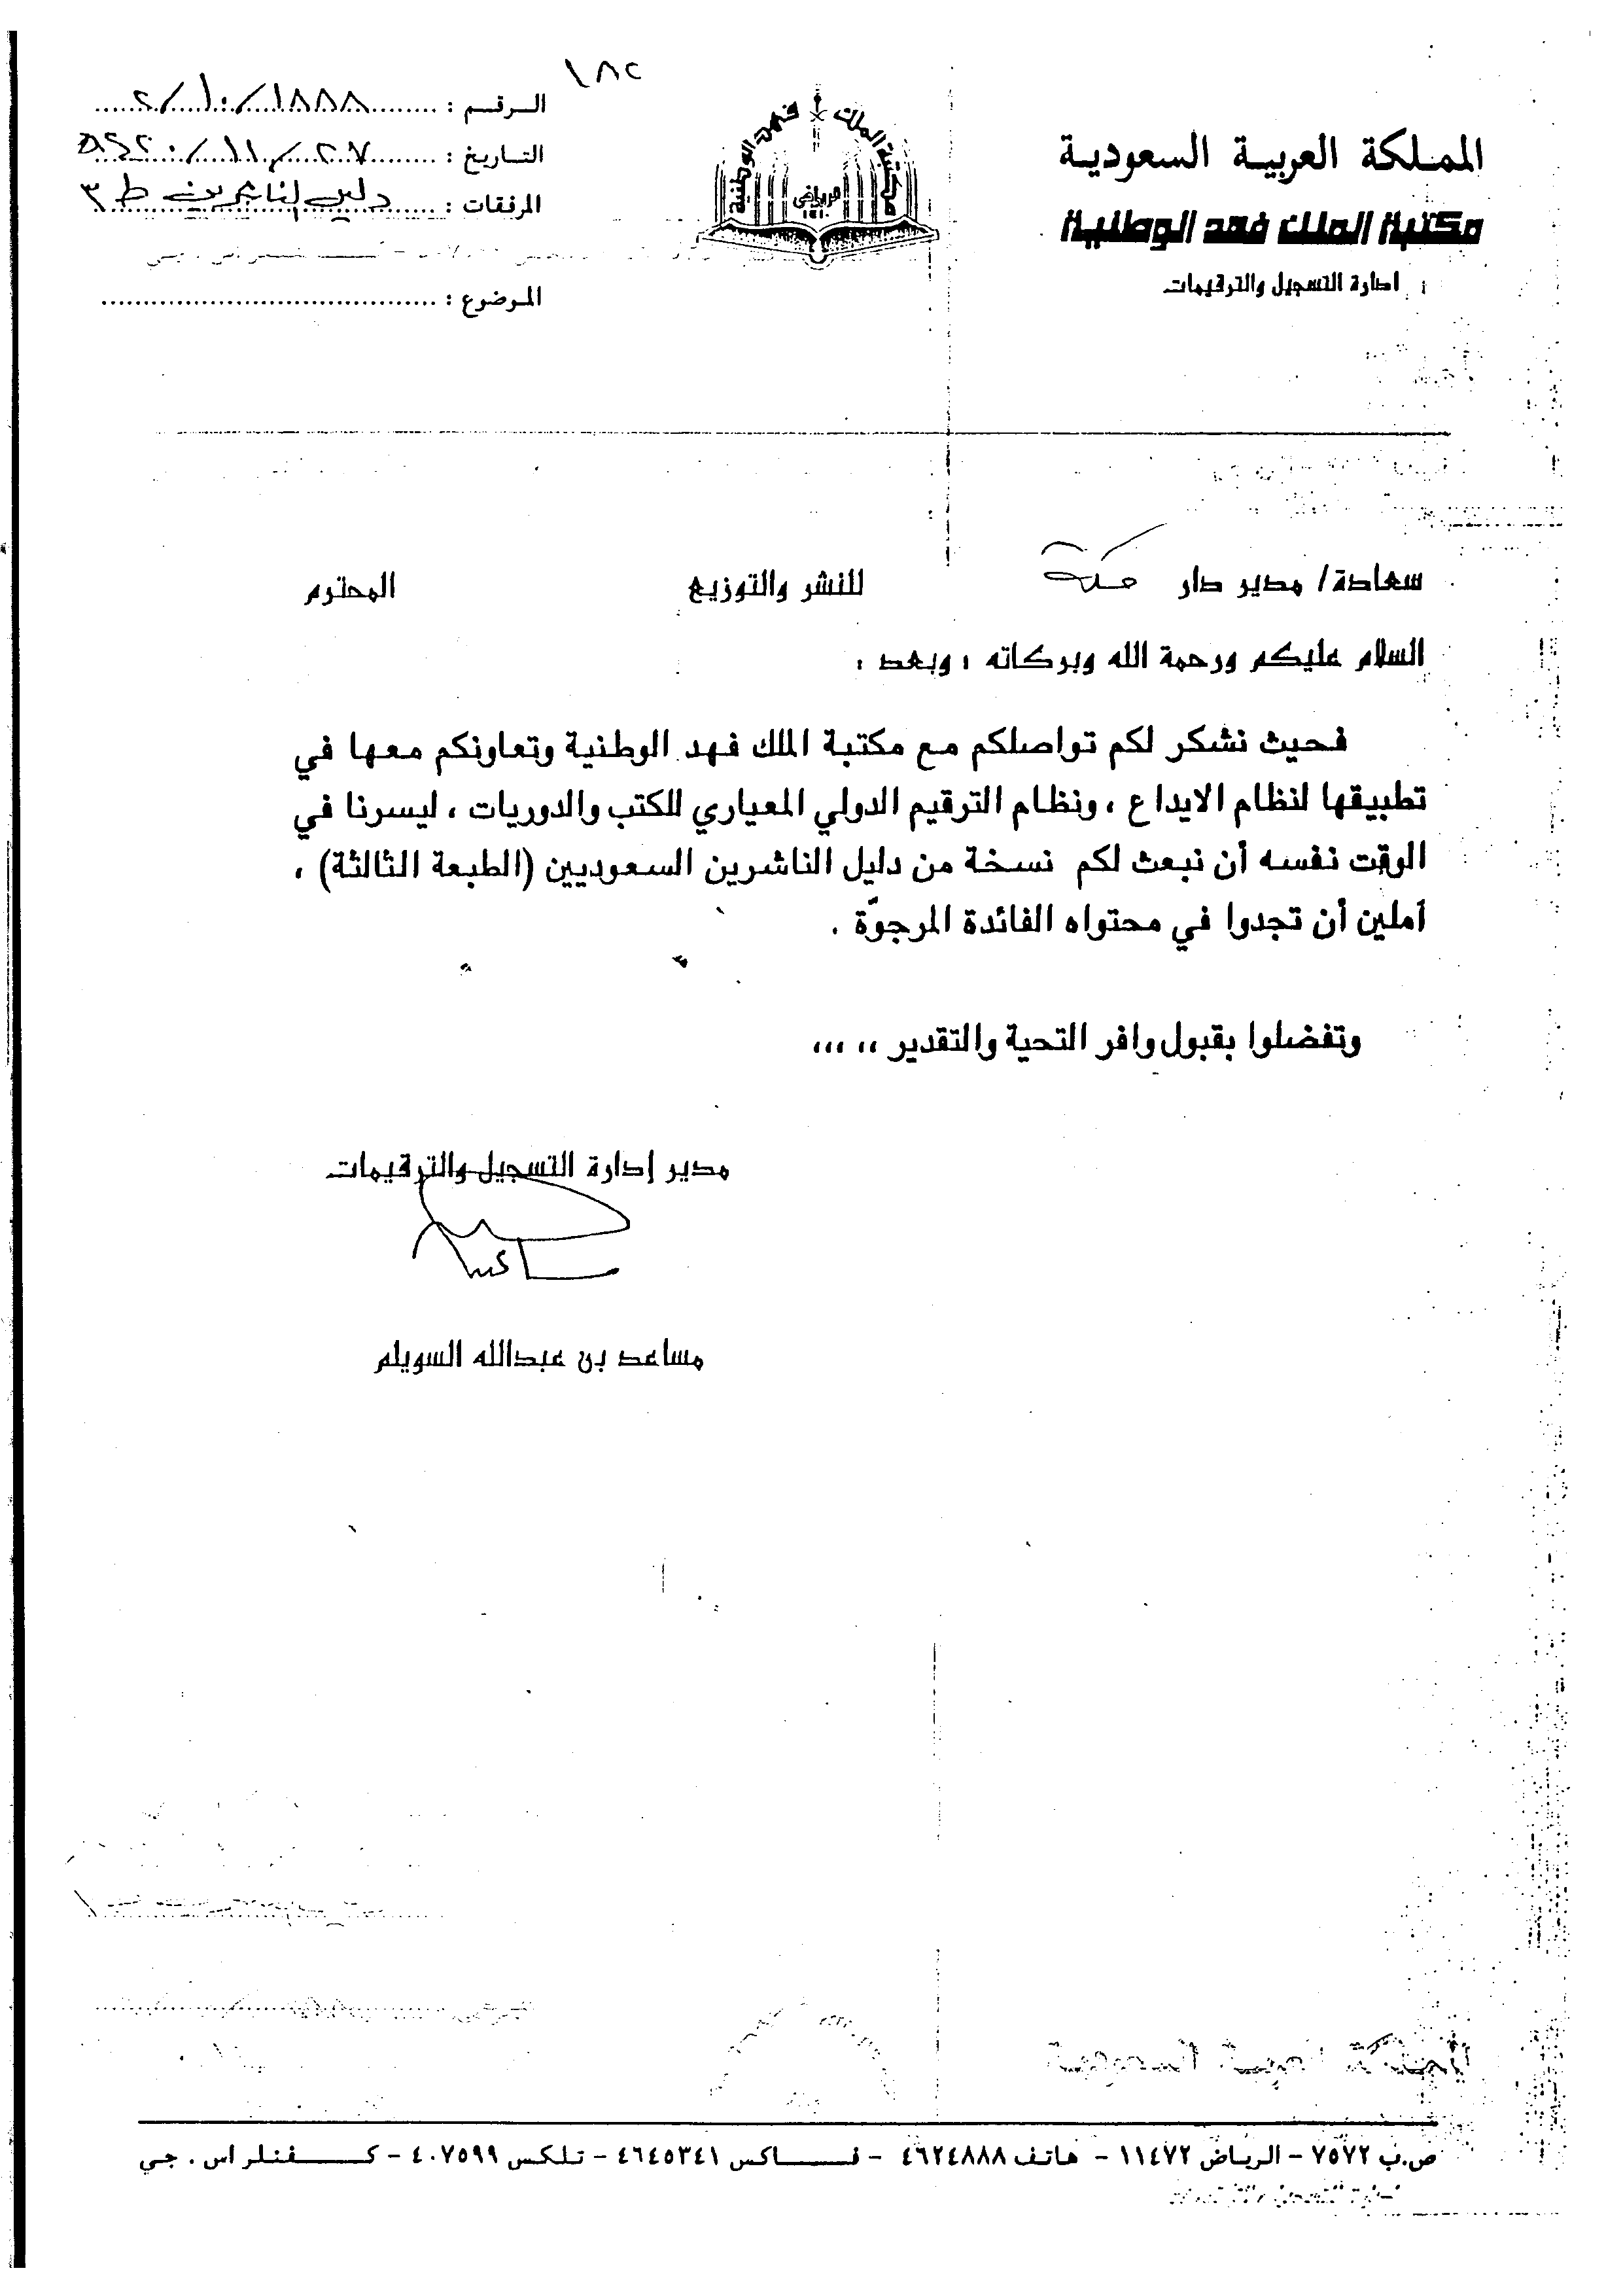 ١٨٢
المملكة العربية السعودية
مكتبة الملك فهد الوطنية
ادارة التسجيل والترقيمات
مكتبة الملك فهد الوطنية
الرياض
١٤١٠
الرقم : ١٨٨٨/١٠/٢
التاريخ : ٢٧/١١/٢٠
المرفقات : دليل الناشرين ط ٣
الموضوع :
سعادة/ مدير دار مكة للنشر والتوزيع المحترم
السلام عليكم ورحمة الله وبركاته ، وبعد ،
فحيث نشكر لكم تواصلكم مع مكتبة الملك فهد الوطنية وتعاونكم معها في
تطبيقها لنظام الايداع ، ونظام الترقيم الدولي المعياري للكتب والدوريات ، ليسرنا في
الوقت نفسه أن نبعث لكم نسخة من دليل الناشرين السعوديين (الطبعة الثالثة) ،
آملين أن تجدوا في محتواه الفائدة المرجوّة .
وتفضلوا بقبول وافر التحية والتقدير ،، ،،،
مدير إدارة التسجيل والترقيمات
مساعد بن عبدالله السويلم
ص.ب ٧٥٧٢ - الرياض ١١٤٧٢ - هاتف ٤٦٢٤٨٨٨ - فاكس ٤٦٤٥٣٤١ - تلكس ٤٠٧٥٩٩ - كفنلر اس . جي